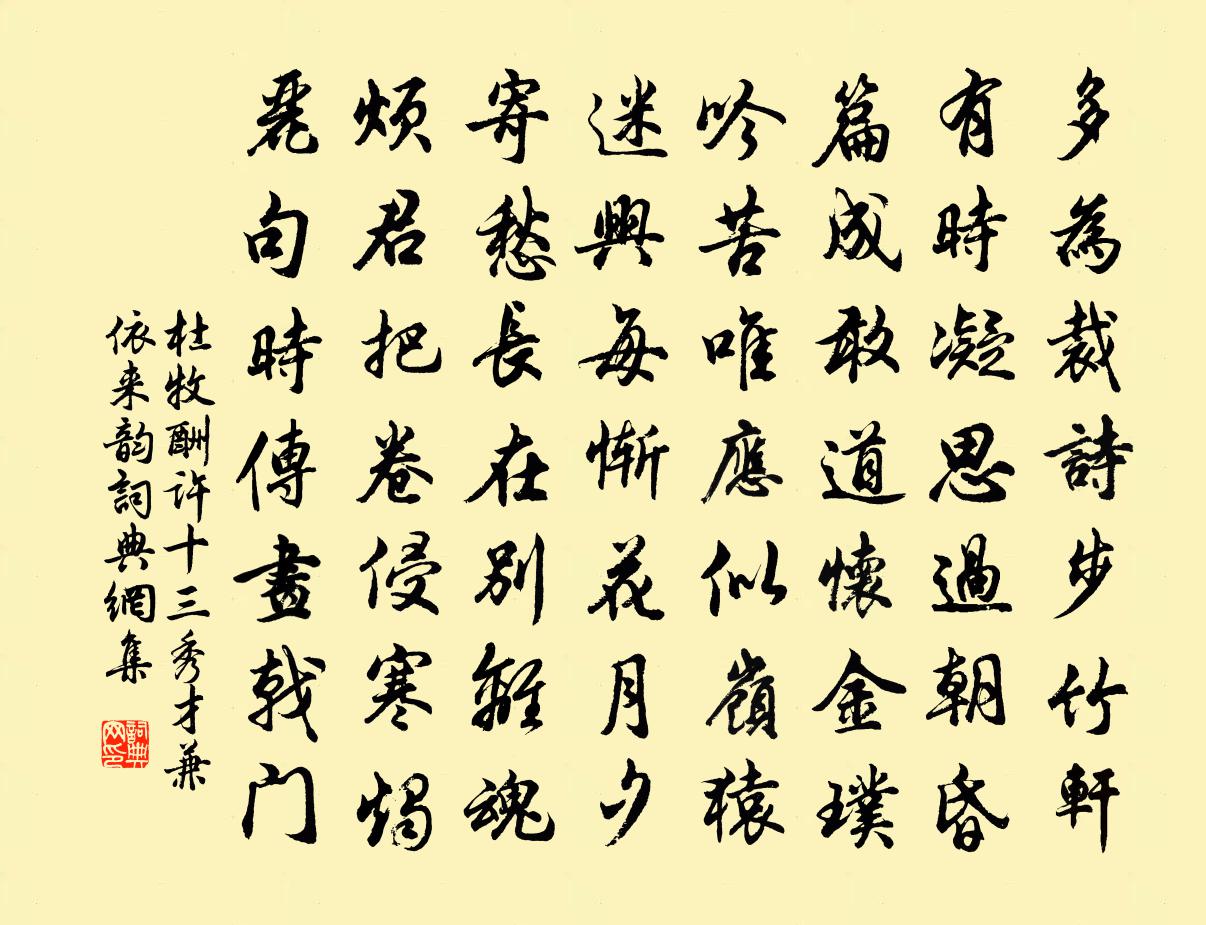 多為裁詩步竹軒
有時凝思過朝昏
篇成敢道懷金璞
吟苦唯應似嶺猿
迷興每慚花月夕
寄愁長在別離魂
煩君把卷侵寒燭
麗句時傳畫戟門
杜牧酬許十三秀才兼
依来韵詞典網集
詞典
网印